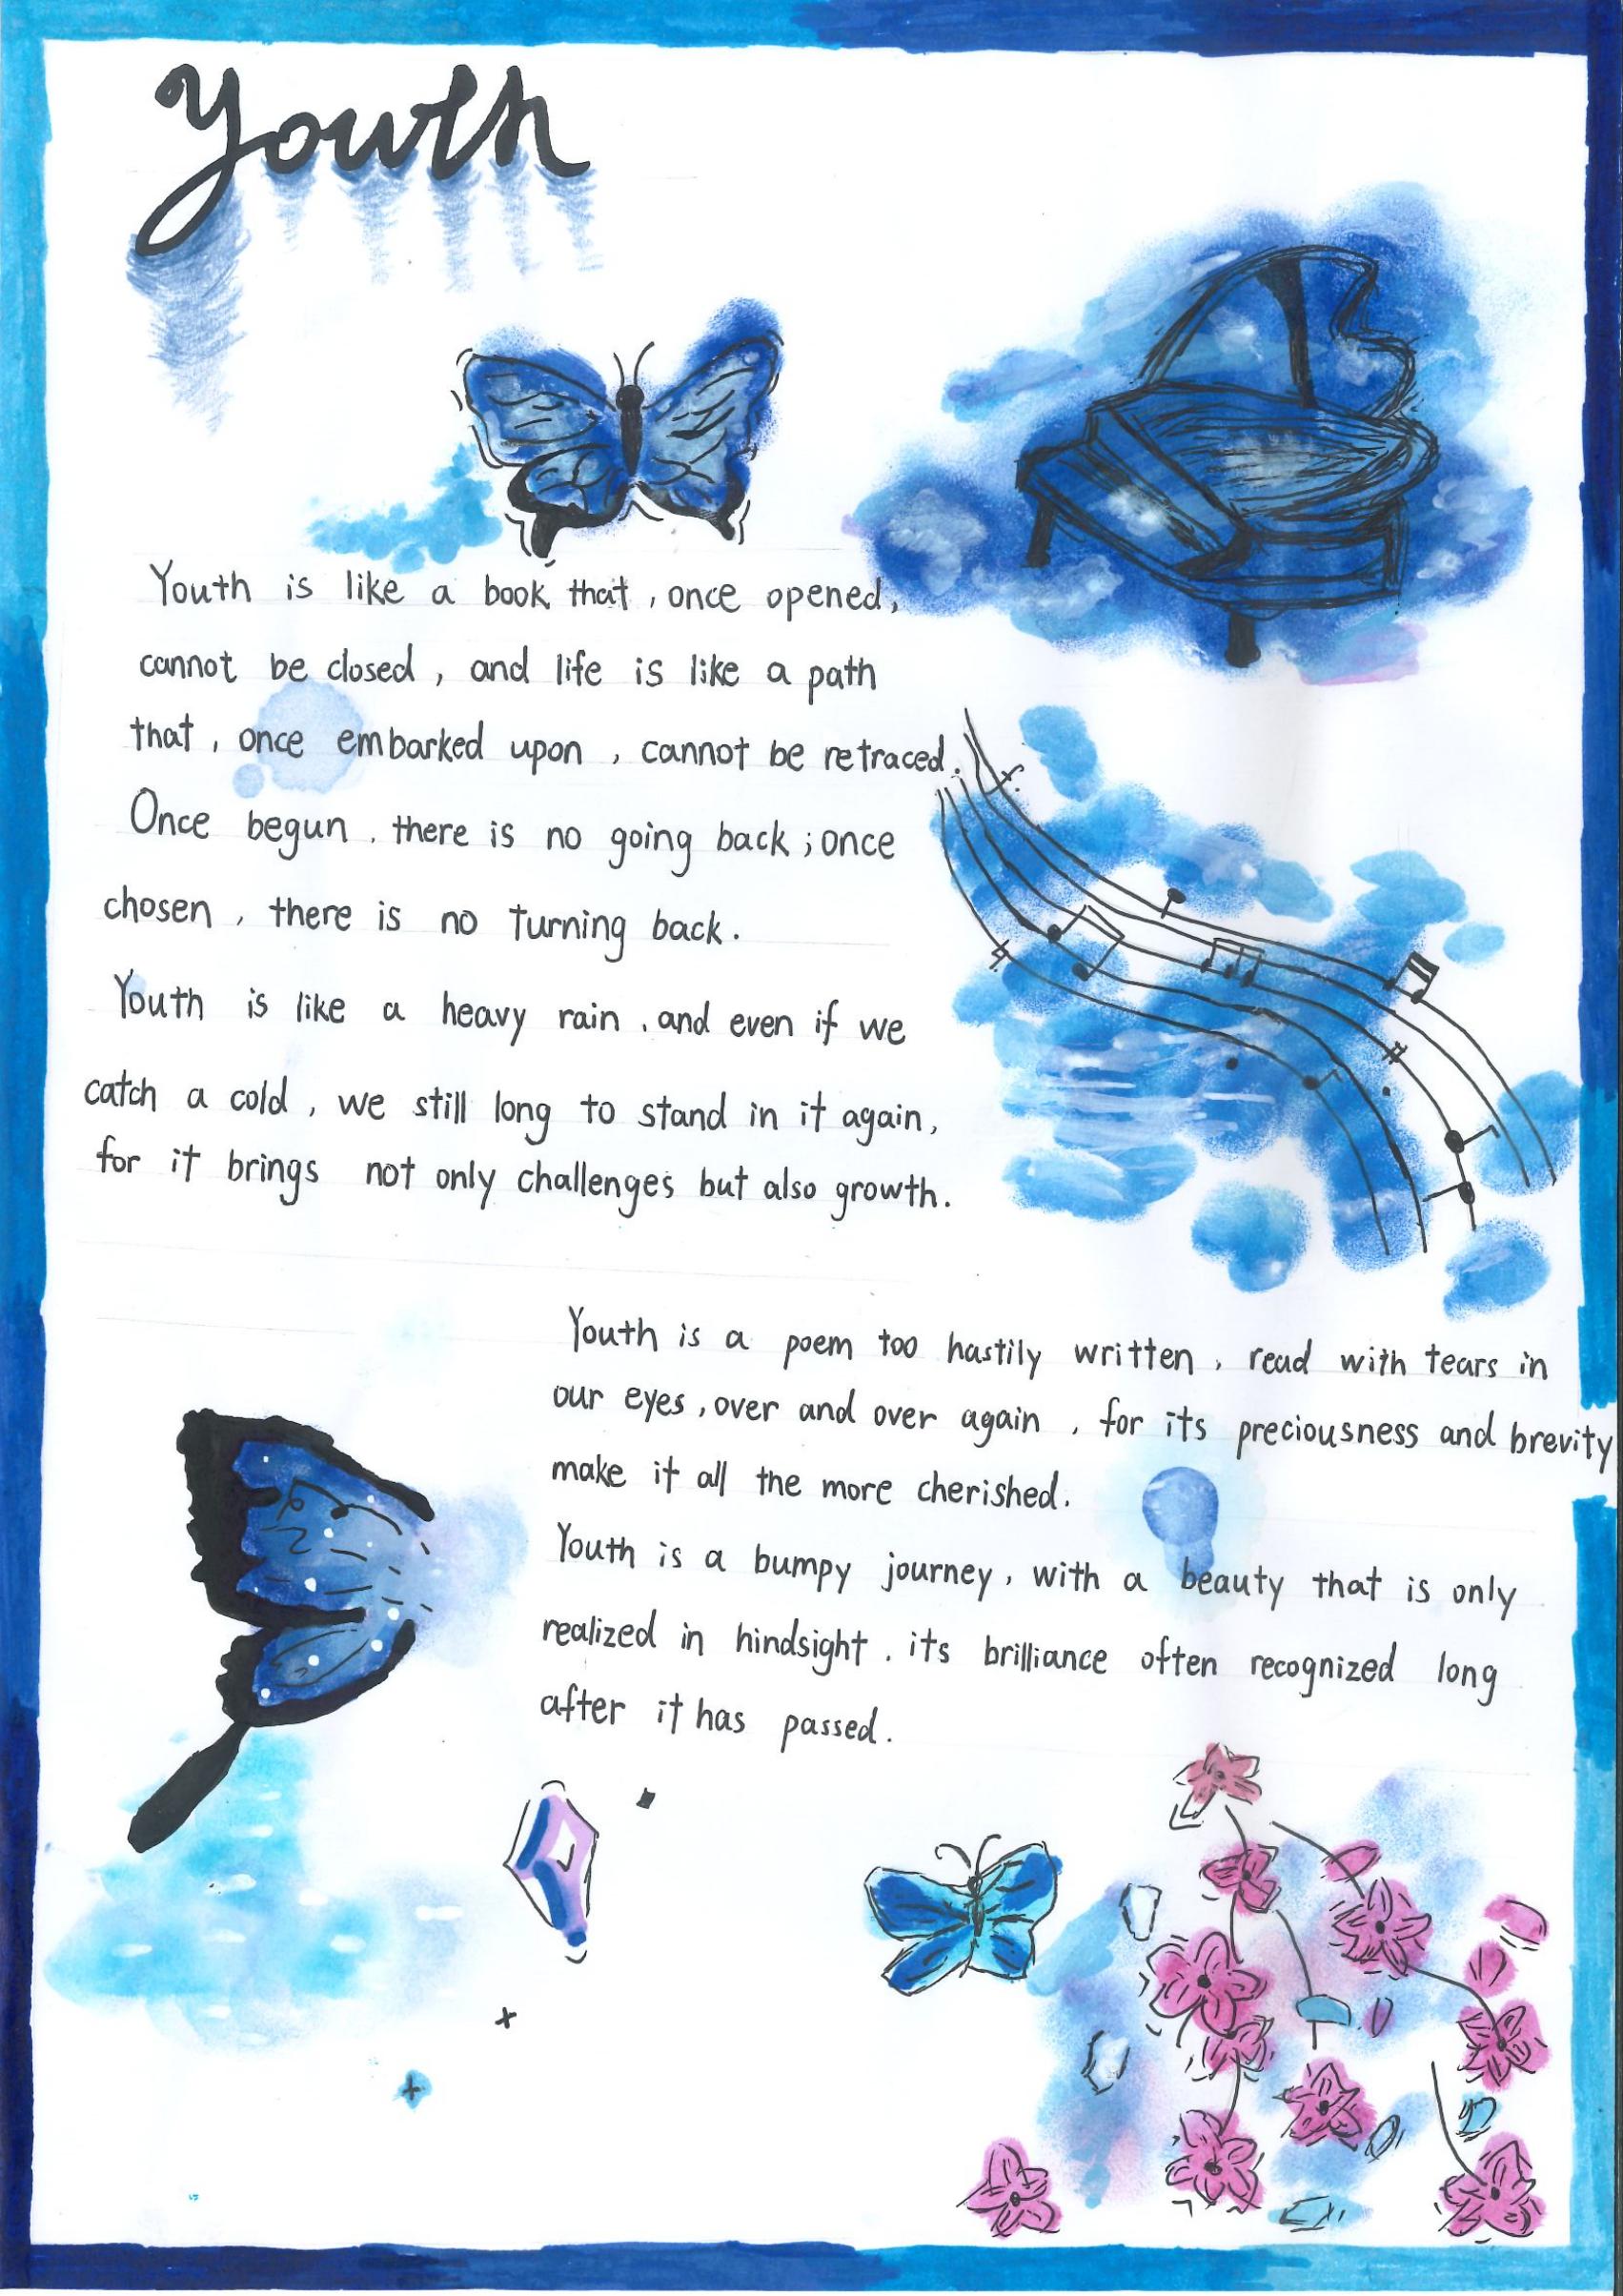 Youth
Youth is like a book that, once opened,
cannot be closed, and life is like a path
that, once embarked upon, cannot be retraced.
Once begun, there is no going back; once
chosen, there is no turning back.
Youth is like a heavy rain, and even if we
catch a cold, we still long to stand in it again,
for it brings not only challenges but also growth.
Youth is a poem too hastily written, read with tears in
our eyes, over and over again, for its preciousness and brevity
make it all the more cherished.
Youth is a bumpy journey, with a beauty that is only
realized in hindsight, its brilliance often recognized long
after it has passed.